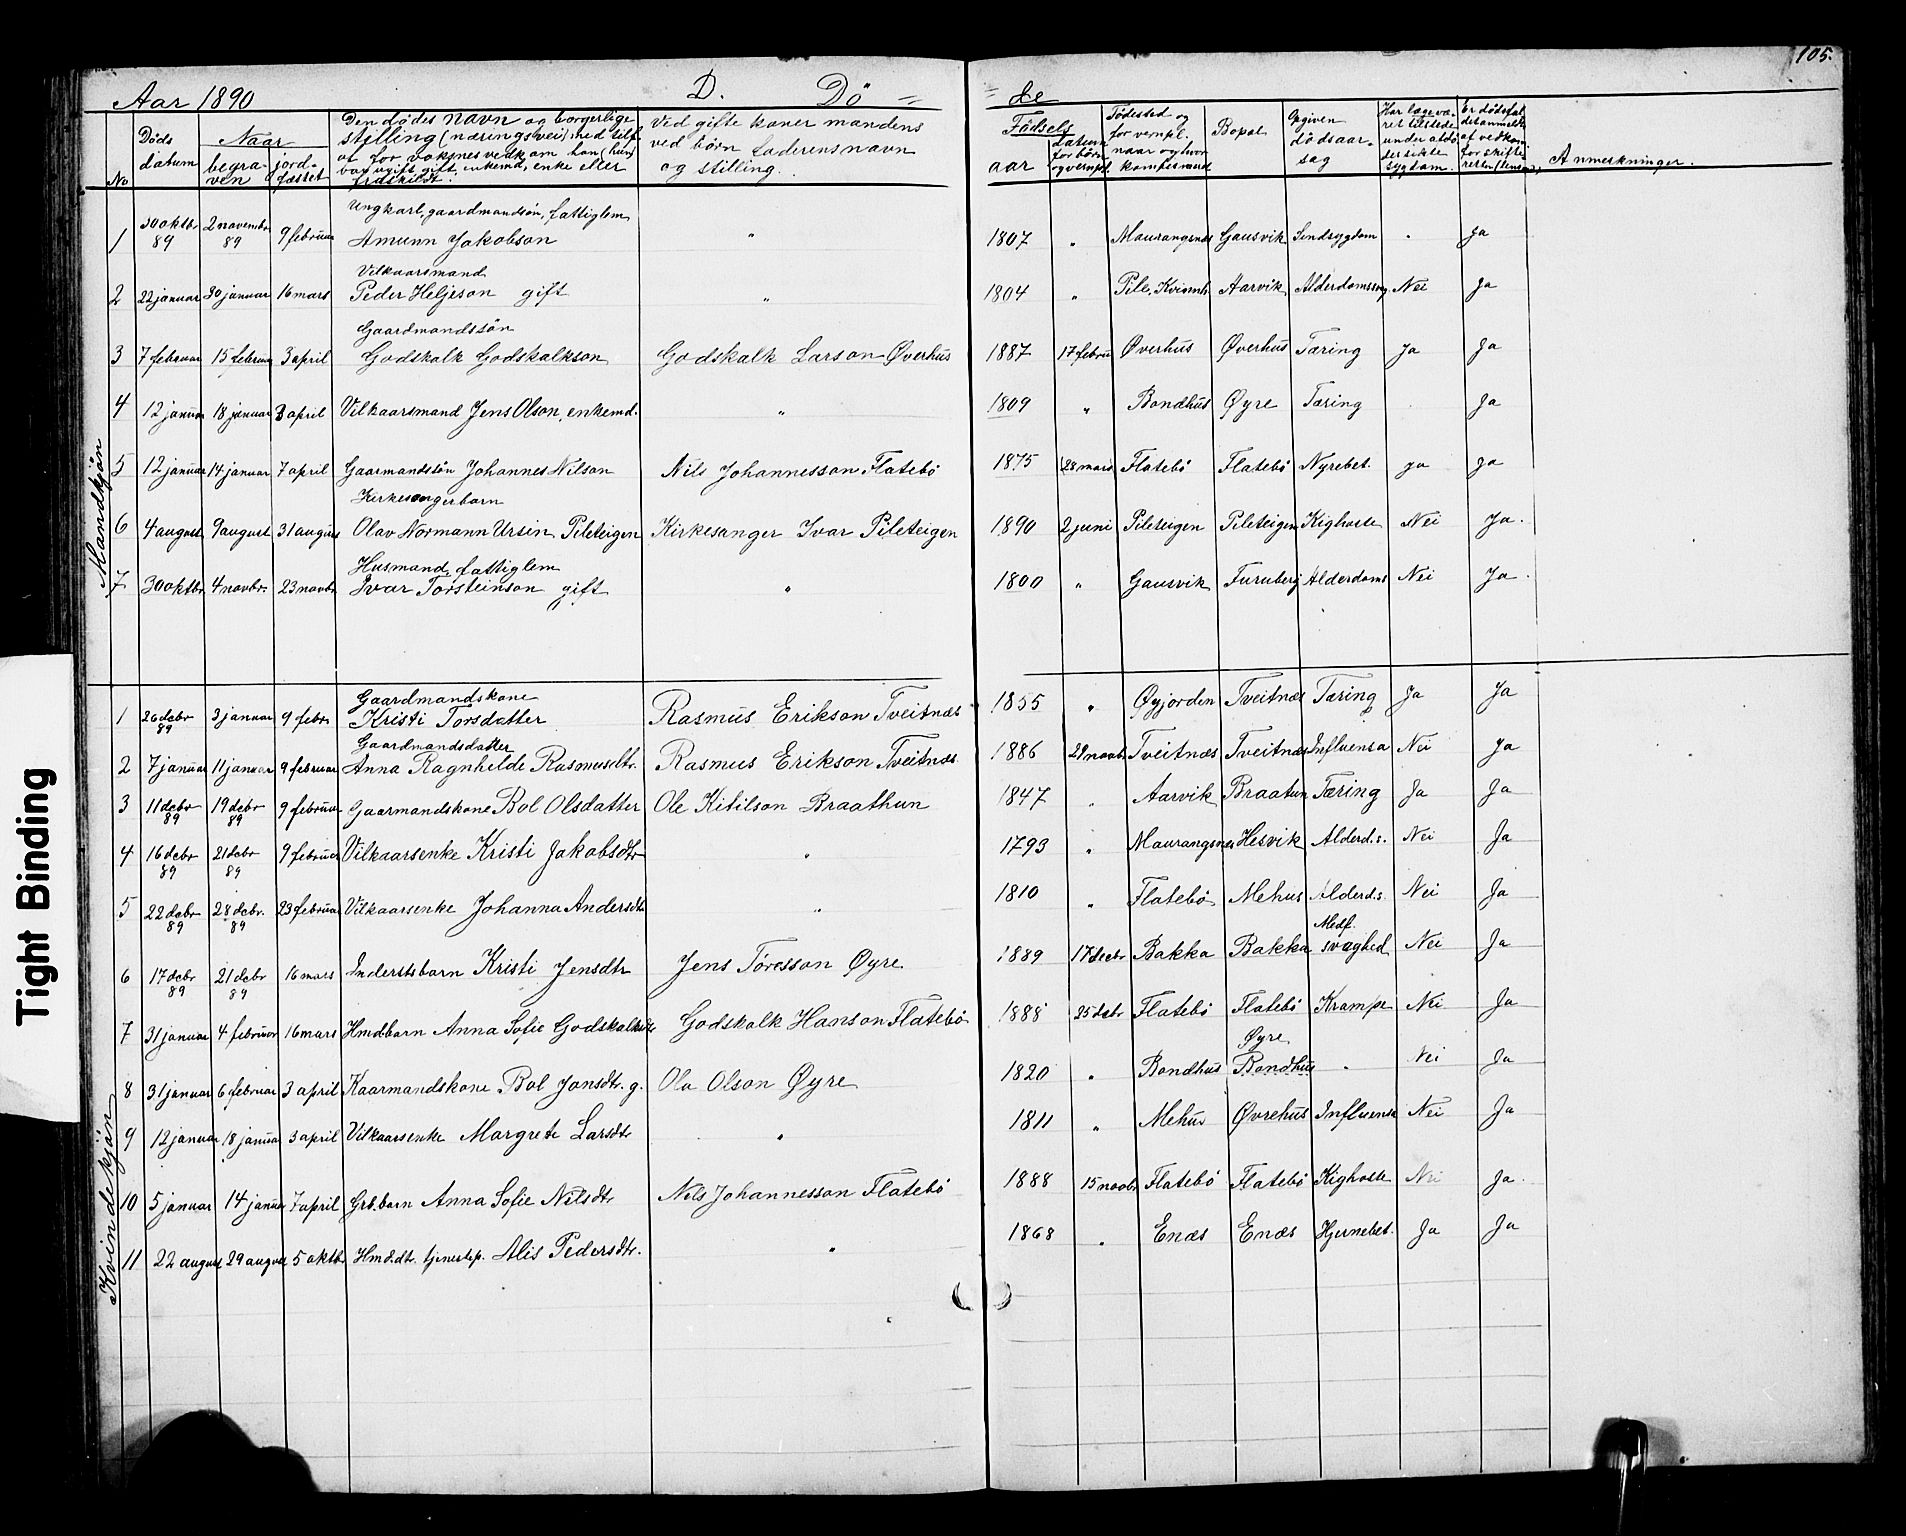 105.
Aar 1890 D. Dö = = de
No Döds datum Naar begraven jordfæstet Den dödes navn og borgerlige stilling (næringsvei) med tilf. af for voksnes vedkom. han (hun) var ugift, gift, enkemd, enke eller fraskildt. Ved gifte koner mandens ved börn faderens navn og stilling. Födsels aar datum for börn og vempl. Födested og for vempl. naar og hvor Bopæl Opgiven dödsaarsag Har læge været tilstede under sidste sygdom. Anmerkninger.
Mandkjön
Ungkarl, gaardmandsön, fattiglem
1 30 oktbr 89 2 novembr 89 9 februar Amunn Jakobson " 1807 " Maurangsnes Gausvik Sindsygdom . Ja
Vilkaarsmand
2 22 januar 30 januar 16 mars Peder Heljeson gift " 1804 " Pile, Kvinnh. Aarvik Alderdomssvag Nei Ja
Gaardmandssön
3 7 februar 15 februar 3 april Godskalk Godskalkson Godskalk Larson Øverhus 1887 17 febru Øverhus Øverhus Tæring Ja Ja
4 12 januar 18 januar 3 april Vilkaarsmand Jens Olson, enkemd. " 1809 " Bondhus Øyre Tæring . Ja
5 12 januar 14 januar 7 april Gaarmandssön Johannes Nilson Nils Johannesson Flatebö 1875 28 mars Flatebö Flatebö Nyrebet. ja ja
Kirkesangerbarn
6 4 august 9 august 31 august Olav Normann Ursin Pileteigen Kirkesanger Ivar Pileteigen 1890 2 juni Pileteigen Pileteigen Kighoste Nei Ja.
Husmand, fattiglem
7 30 oktbr. 4 novbr. 23 novbr Ivar Torsteinson gift " 1800 " Gausvik Furuberg Alderdoms Nei Ja.
Kvindekjön
Gaardmandskone
1 26 debr 89 3 januar 9 febr. Kristi Torsdatter Rasmus Erikson Tveitnæs 1855 " Øyjorden Tveitnæs Tæring Ja Ja
Gaardmandsdatter
2 7 januar 11 januar 9 februar Anna Ragnhilde Rasmusdtr. Rasmus Erikson Tveitnæs 1886 29 novb. Tveitnæs Tveitnæs Influensa Nei Ja
3 11 debr 89 19 debr 89 9 februar Gaarmandskone Bol Olsdatter Ole Kitilson Braathun 1847 " Aarvik Braatun Tæring Ja Ja
4 16 debr 89 21 debr 89 9 februar Vilkaarsenke Kristi Jakobsdtr " 1793 " Maurangsnes Hesvik Alderd.s. Nei Ja
5 22 debr 89 28 debr. 89 23 februar Vilkaarsenke Johanna Andersdtr " 1810 " Flatebö Mehus Alderd.s. Nei Ja
6 17 debr 89 21 debr 89 16 mars Inderstsbarn Kristi Jensdtr Jens Töresson Øyre 1889 17 decbr Bakka Bakka Medf. svaghed Nei Ja
7 31 januar 4 februar 16 mars Hmdbarn Anna Sofie Godskalksdtr Godskalk Hanson Flatebö 1888 25 debr Flatebö Flatebö Krampe Nei Ja
8 31 januar 6 februar 3 april Kaarmandskone Bol Jonsdtr. g. Ola Olson Øyre 1820 " Bondhus Øyre Bondhus . Nei Ja
9 12 januar 18 januar 3 april Vilkaarsenke Margrete Larsdtr " 1811 " Mehus Øvrehus Influensa Nei Ja
10 5 januar 14 januar 7 april Grb. barn Anna Sofie Nilsdtr Nils Johannesson Flatebö 1888 15 novb. Flatebö Flatebö Kighoste Nei Ja.
11 22 august 29 august 5 oktbr Hmd.dtr. tjenestep. Alis Pedersdtr. " 1868 " Enæs Enæs Hjernebet. Ja Ja
Tight Binding